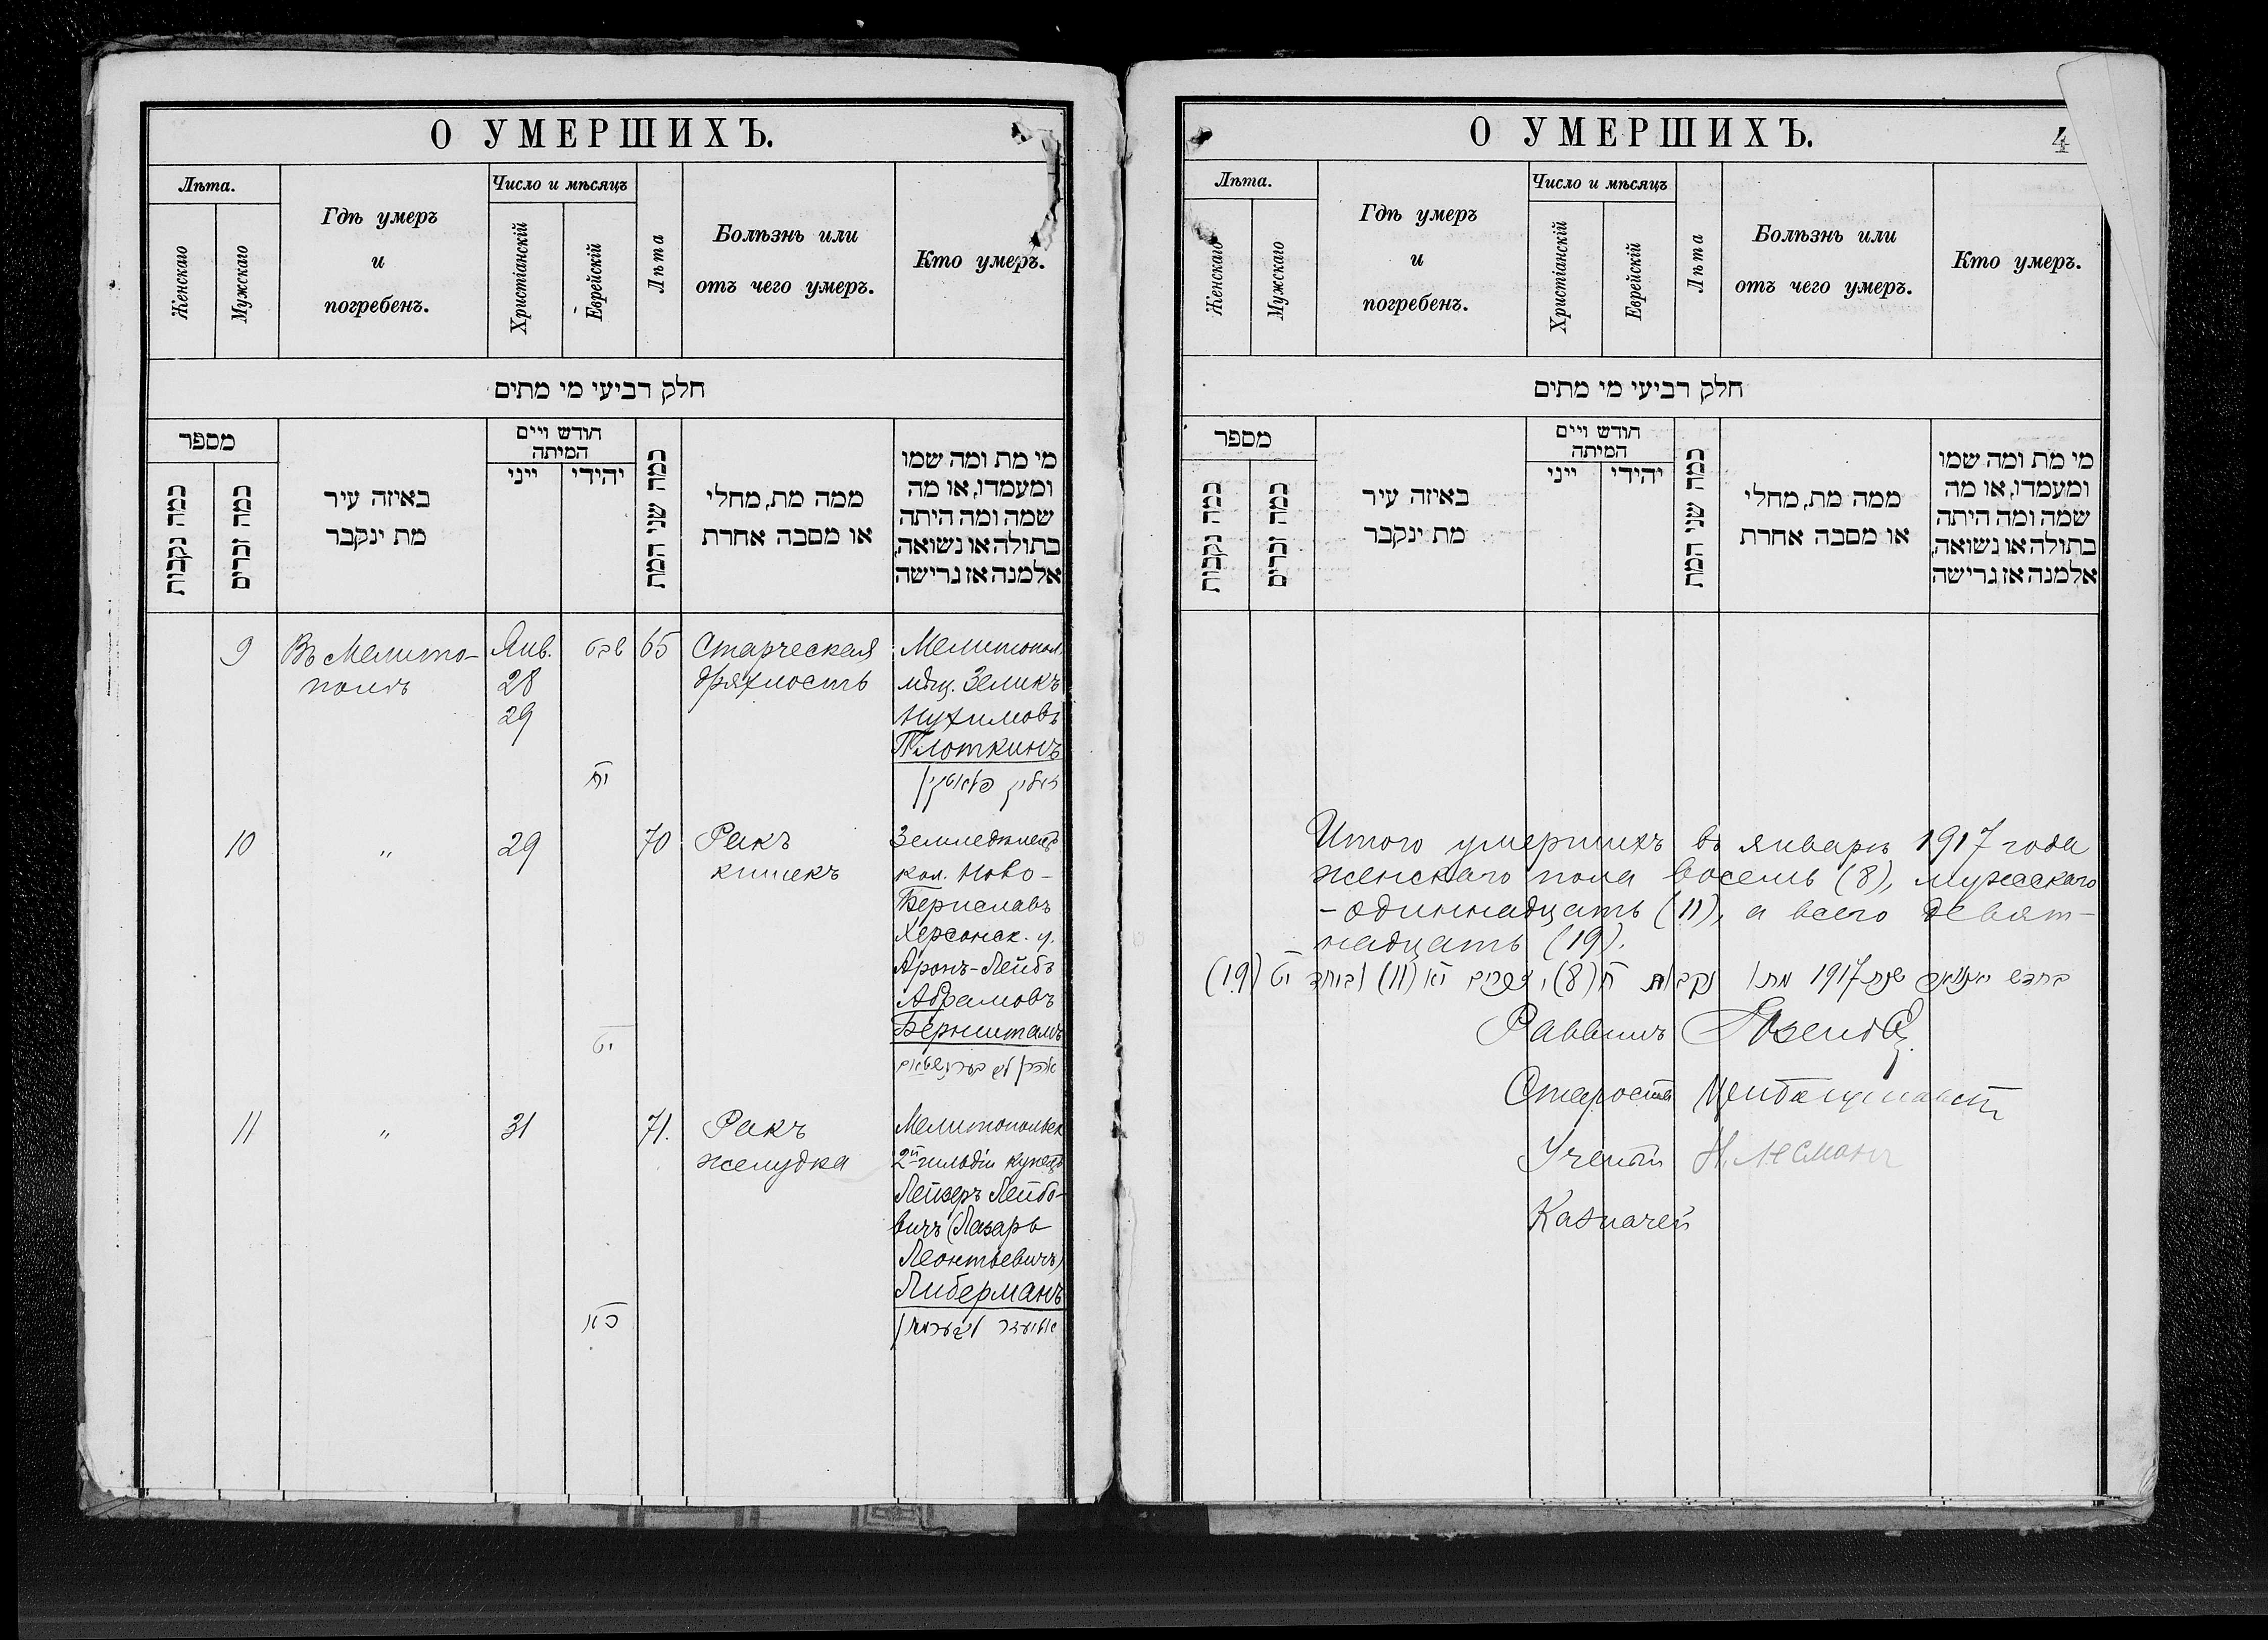 О УМЕРШИХЪ.
Лѣта.
Женскаго
Мужскаго
Гдѣ умеръ
и
погребенъ.
Число и мѣсяцъ
Христіанскій
Еврейскій
Лѣта
Болѣзнь или
отъ чего умеръ.
Кто умеръ.
חלק רביעי מי מתים
מספר
כמה נקבות
כמה זכרים
באיזה עיר
מת ינקבר
חודש ויים
המיתה
ייני
יהידי
כמה שני המת
ממה מת, מחלי
או מסבה אחרת
מי מת ומה שמו
ומעמדו, או מה
שמה ומה היתה
בתולה או נשואה,
אלמנה אז גרישה
9
Въ Мелито-
полѣ
Янв.
28
29
שבט
יח
65
Старческая
дряхлость
Мелитопол.
мѣщ. Зеликъ
Нухимовъ
Плоткинъ
זעליק פלאטקין
10
"
29
יט
70
Ракъ
кишекъ
Земледѣлецъ
кол. Ново-
Бериславъ
Херсонск. у.
Аронъ-Лейбъ
Абрамовъ
Бернштамъ
אהרן ליב בערנשטאם
11
"
31
כא
71.
Ракъ
желудка
Мелитопольск
2й гильдіи купецъ
Лейзеръ Лейбо-
вичъ (Лазарь
Леонтьевичъ)
Либерманъ
אליעזר ליבערמאן
О УМЕРШИХЪ.
4
Лѣта.
Женскаго
Мужскаго
Гдѣ умеръ
и
погребенъ.
Число и мѣсяцъ
Христіанскій
Еврейскій
Лѣта
Болѣзнь или
отъ чего умеръ.
Кто умеръ.
חלק רביעי מי מתים
מספר
כמה נקבות
כמה זכרים
באיזה עיר
מת ינקבר
חודש ויים
המיתה
ייני
יהידי
כמה שני המת
ממה מת, מחלי
או מסבה אחרת
מי מת ומה שמו
ומעמדו, או מה
שמה ומה היתה
בתולה או נשואה,
אלמנה אז גרישה
Итого умершихъ въ январѣ 1917 года
женскаго пола восемь (8), мужскаго
- одиннадцать (11), а всего девят-
надцать (19).
בחדש יאנואר שנת 1917 מתו נקבות ח (8), זכרים יא (11) וביחד יט (19)
Раввинъ
Староста
Ученый Н. Лесманъ
Казначей